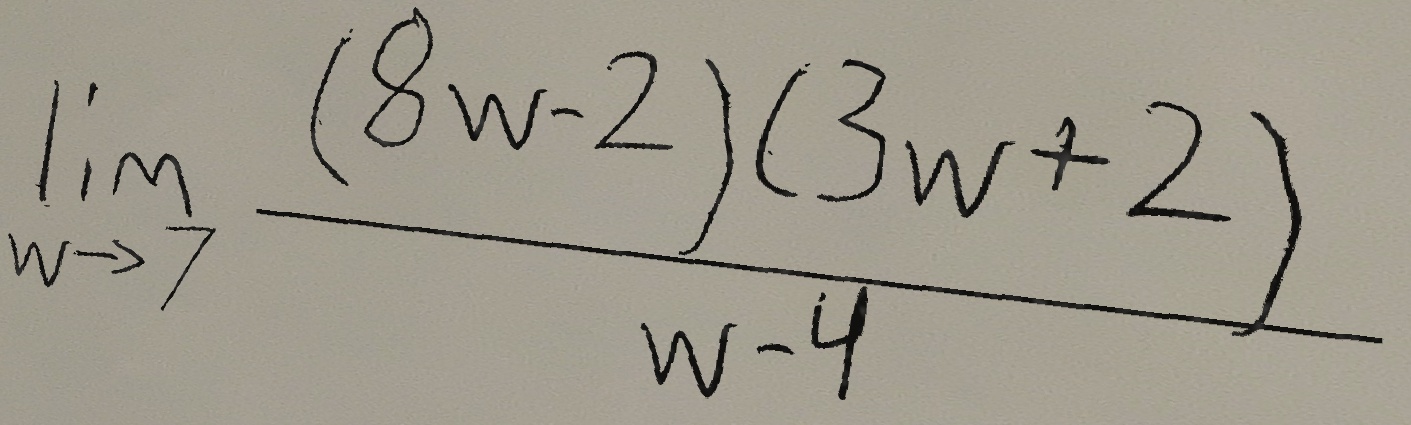 lim w→7 (8w-2)(3w+2)
w-4